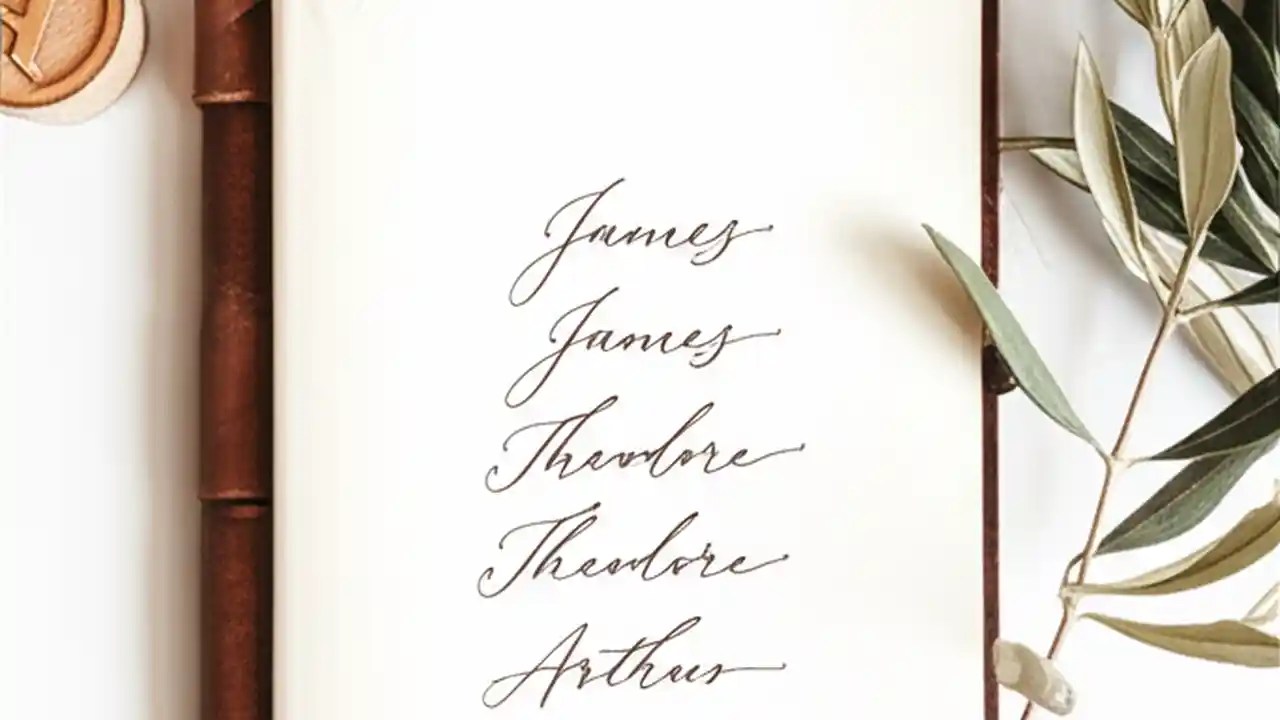 James
James
Theodore
Theodore
Arthur